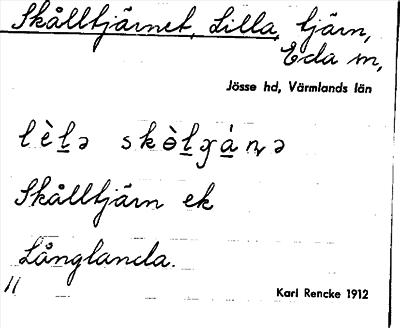 Skålltjärnet, Lilla, tjärn,
Eda sn,
Jösse hd, Värmlands län
Skålltjärn ek
Långlanda.
11
Karl Rencke 1912